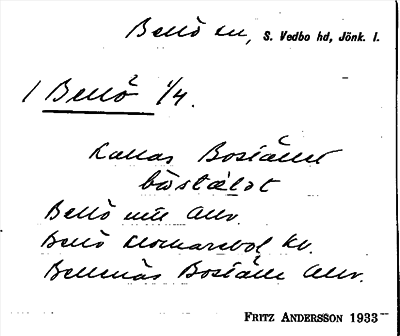 Bellö sn, S. Vedbo hd, Jönk. l.
1 Bellö 1/4.
Kallas Bostället
bòstælət
Bellö
Bellö Klomarebol Kv.
Bellenäs Boställe
FRITZ ANDERSSON 1933